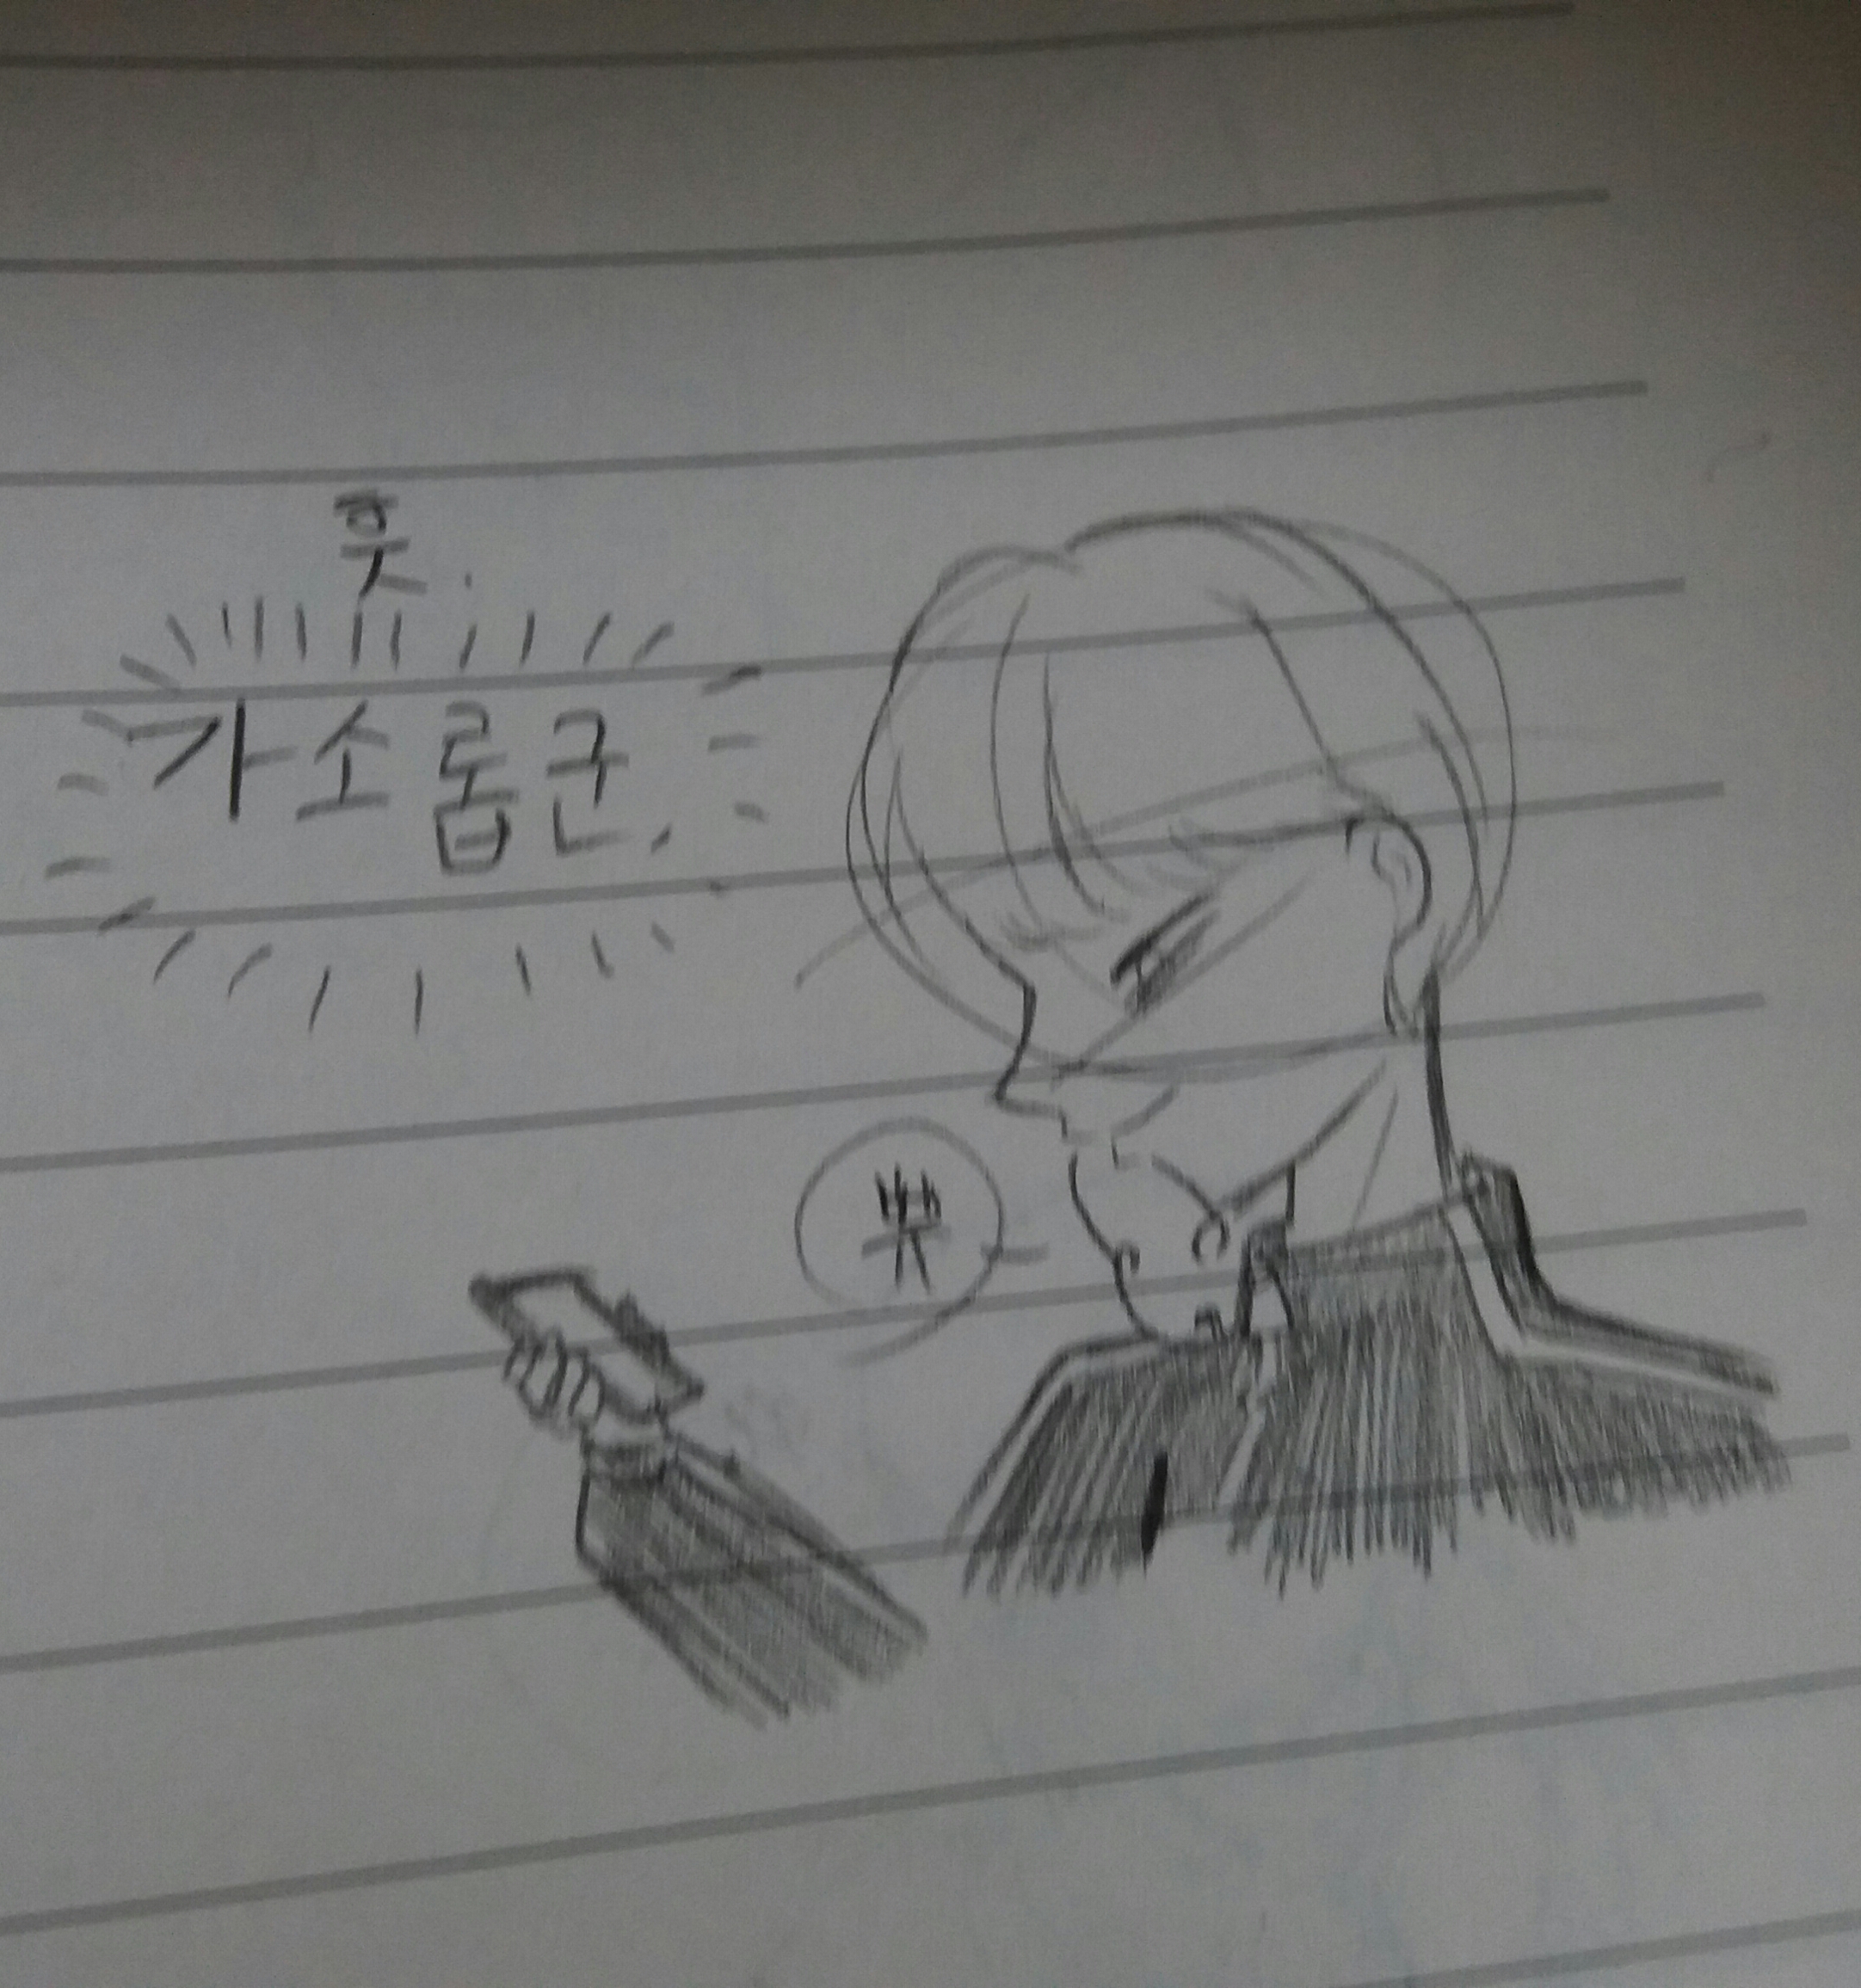 훗.
가소롭군.
뿟